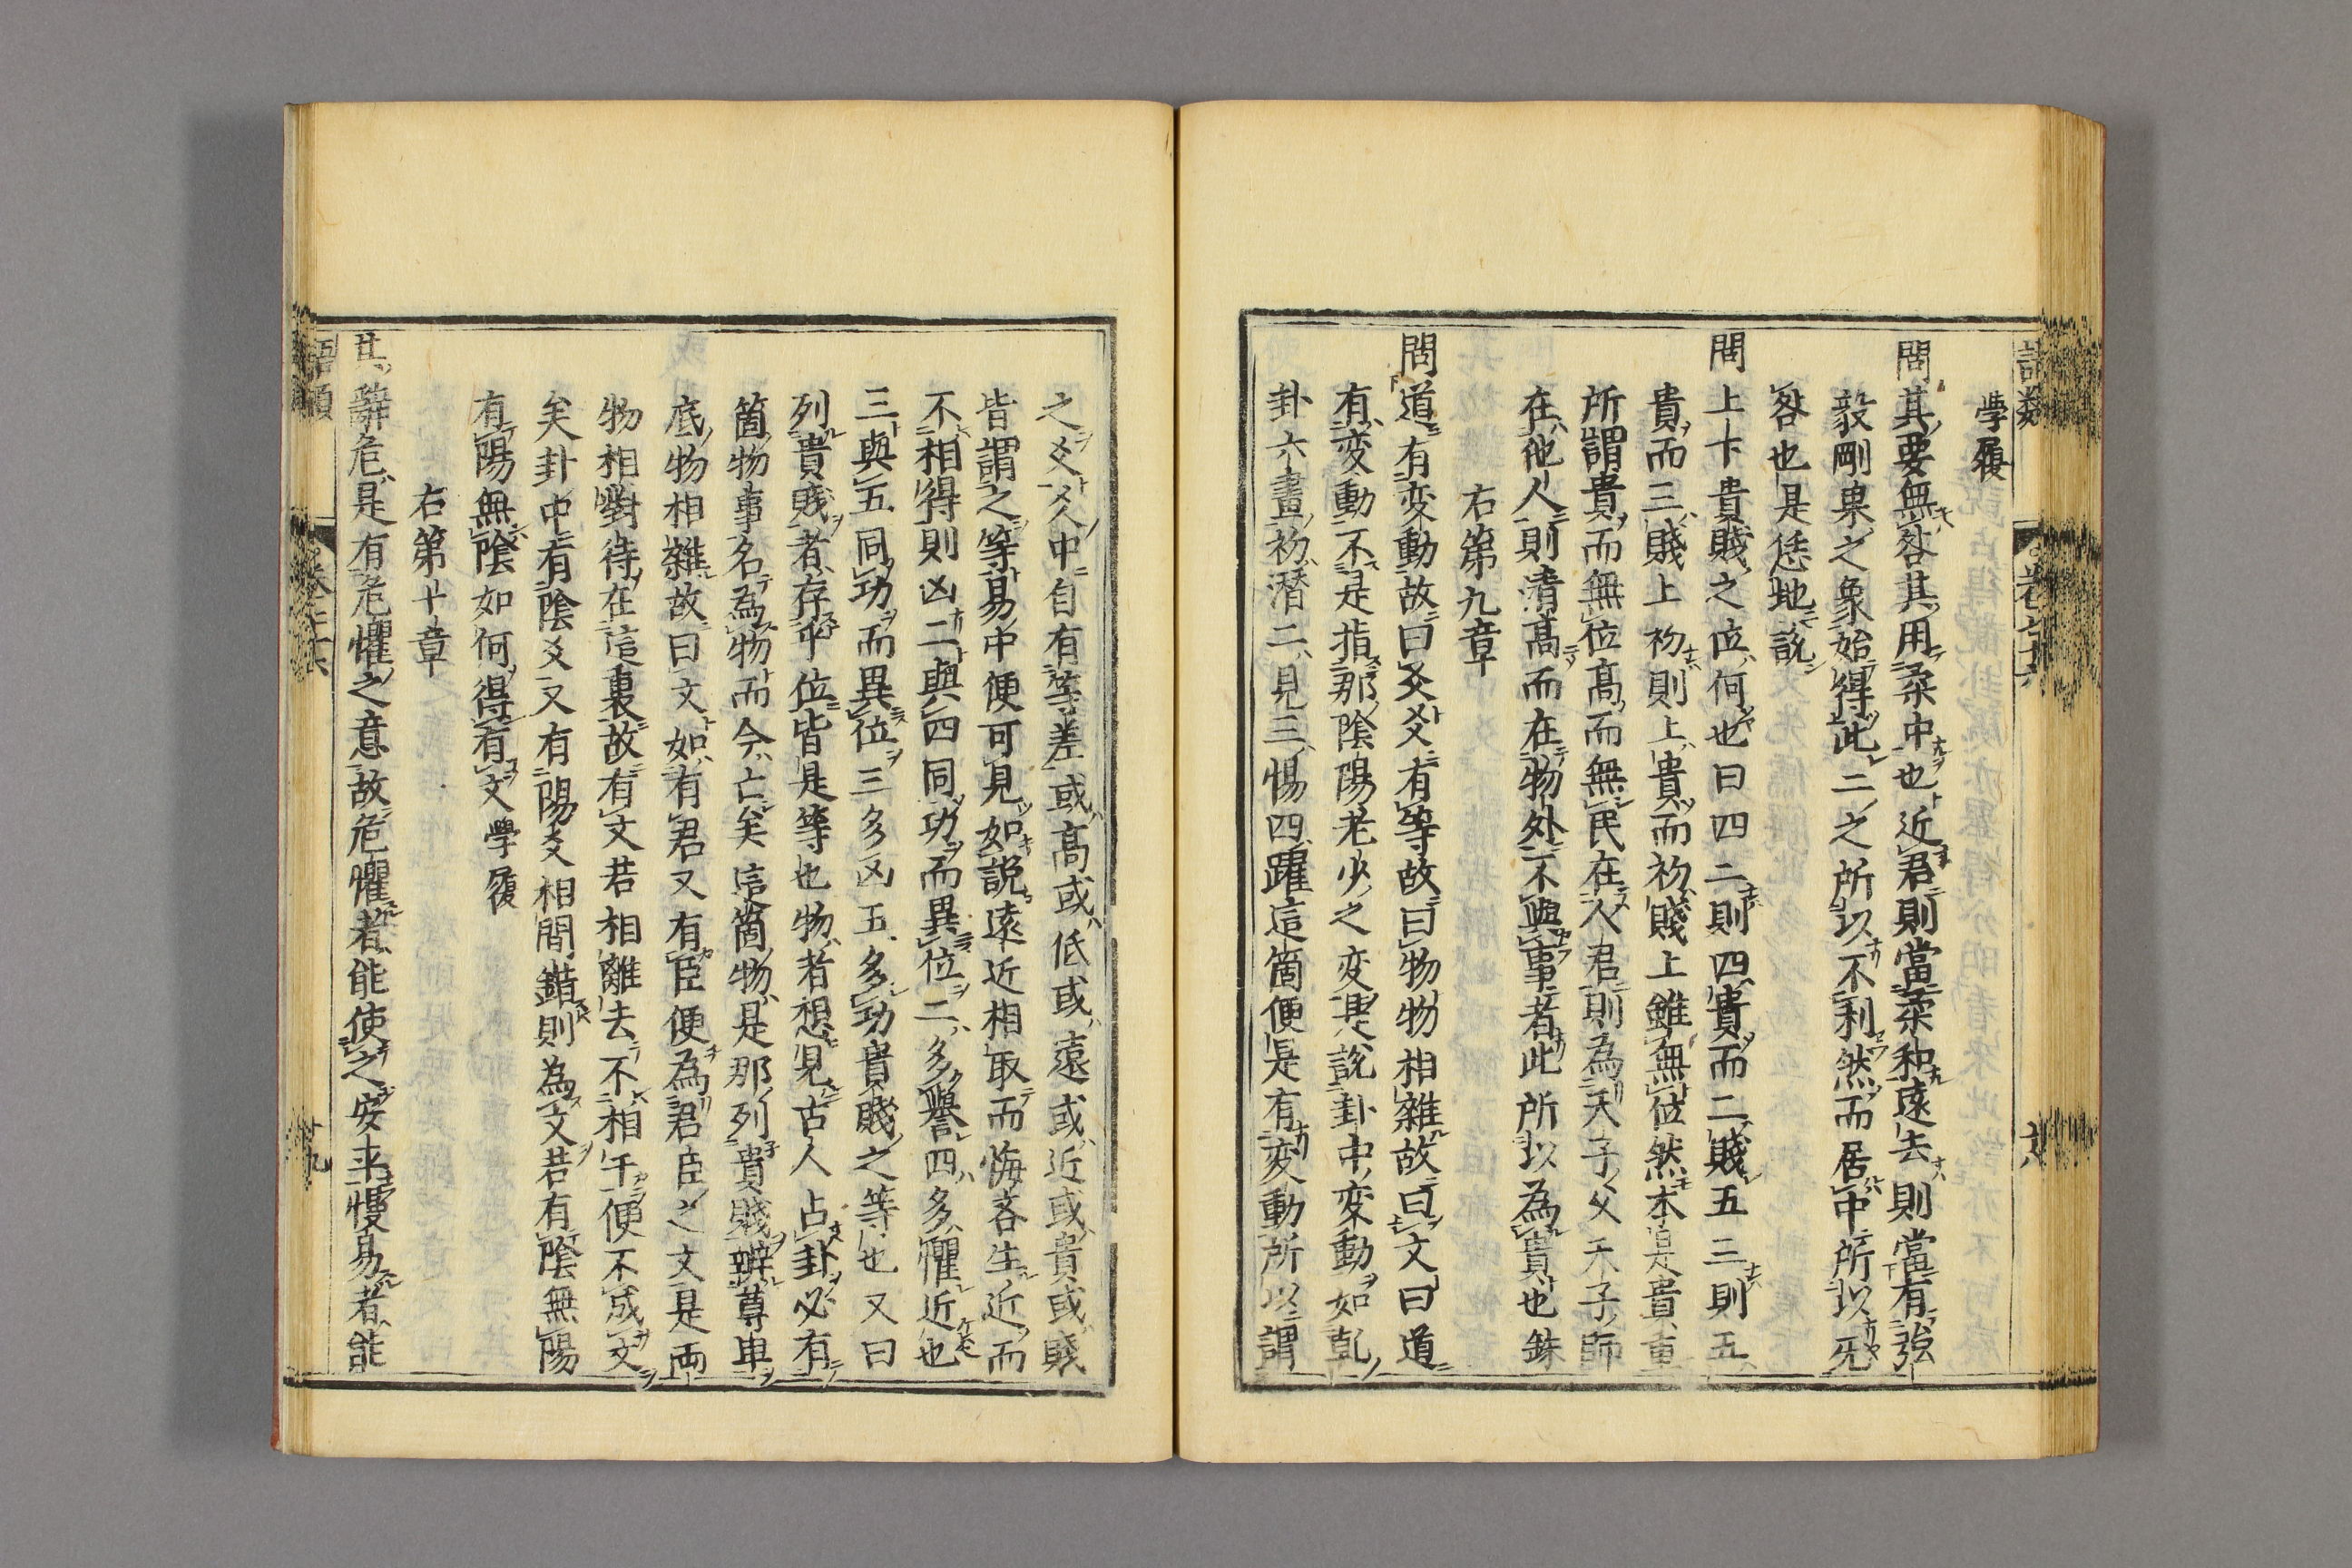 語類 卷七十六
學履
問其要無咎其用柔中也近君則當柔和遠去則當有強
毅剛果之象始得此二之所以不利然而居中所以无
咎也是恁地說
問上下貴賤之位何也曰四二則四貴而二賤五三則五
貴而三賤上初則上貴而初賤上雖無位然本是貴重
所謂貴而無位高而無民在人君則為天子父天子師
在他人則清高而在物外不與事者此所以為貴也銖
右第九章
問道有変動故曰爻爻有等故曰物物相雜故曰文曰道
有変動不是指那陰陽老少之変是說卦中変動如乾
卦六畫初潛二見三惕四躍這箇便是有変動所以謂
之爻爻中自有等差或高或低或遠或近或貴或賤
皆謂之等易中便可見如說遠近相取而悔吝生近而
不相得則凶二與四同功而異位二多譽四多懼近也
三與五同功而異位三多凶五多功貴賤之等也又曰
列貴賤者存乎位皆是等也物者想見古人占卦必有
箇物事名為物而今亡矣這箇物是那列貴賤辨尊卑
底物相雜故曰文如有君又有臣便為君臣之文是両
物相對待在這裏故有文若相離去不相干便不成文
矣卦中有陰爻又有陽爻相間錯則為文若有陰無陽
有陽無陰如何得有文 學履
右第十章
其辭危是有危懼之意故危懼者能使之安平慢易者能
語類 十九